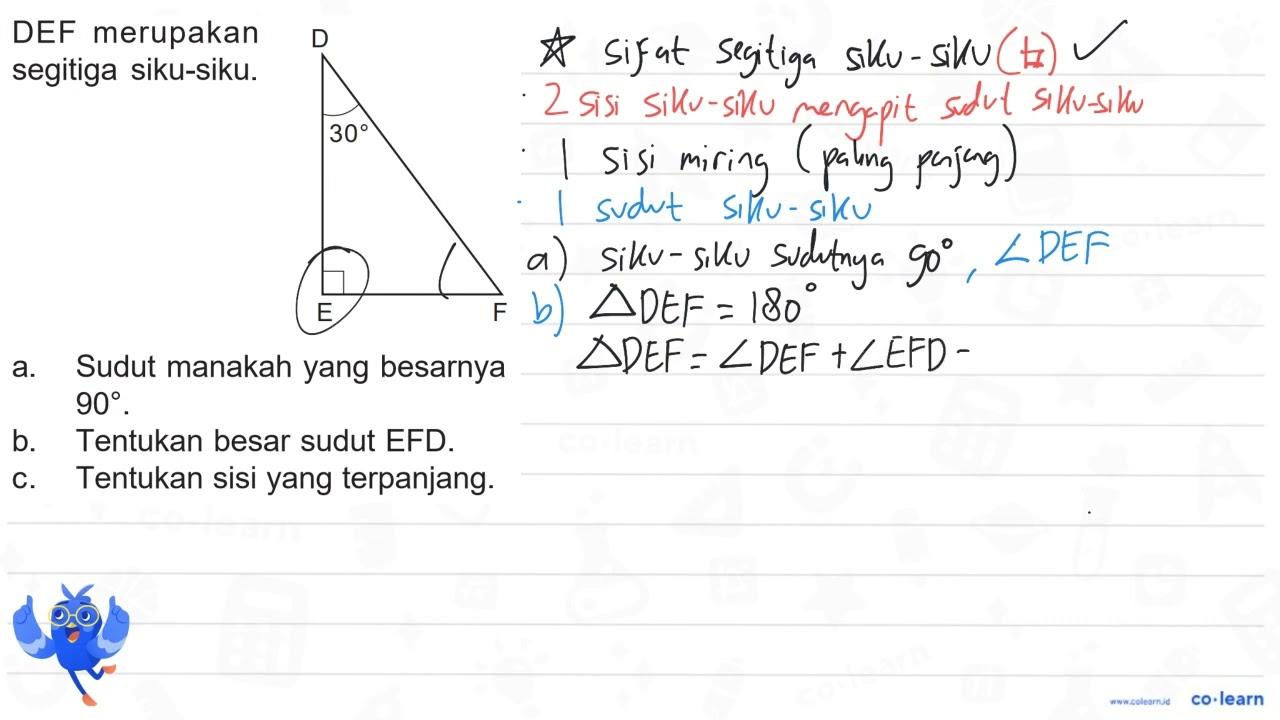 DEF merupakan
segitiga siku-siku.
D
30°
E
F
a. Sudut manakah yang besarnya
90°.
b. Tentukan besar sudut EFD.
c. Tentukan sisi yang terpanjang.
☆ sifat segitiga siku-siku (⊾) ✓
· 2 sisi siku-siku mengapit sudut siku-siku
· 1 sisi miring (paling panjang)
· 1 sudut siku-siku
a) siku-siku sudutnya 90°, ∠DEF
b) △DEF = 180°
△DEF = ∠DEF + ∠EFD -
co·learn
co·learn
co·learn
co·learn
www.colearn.id co·learn